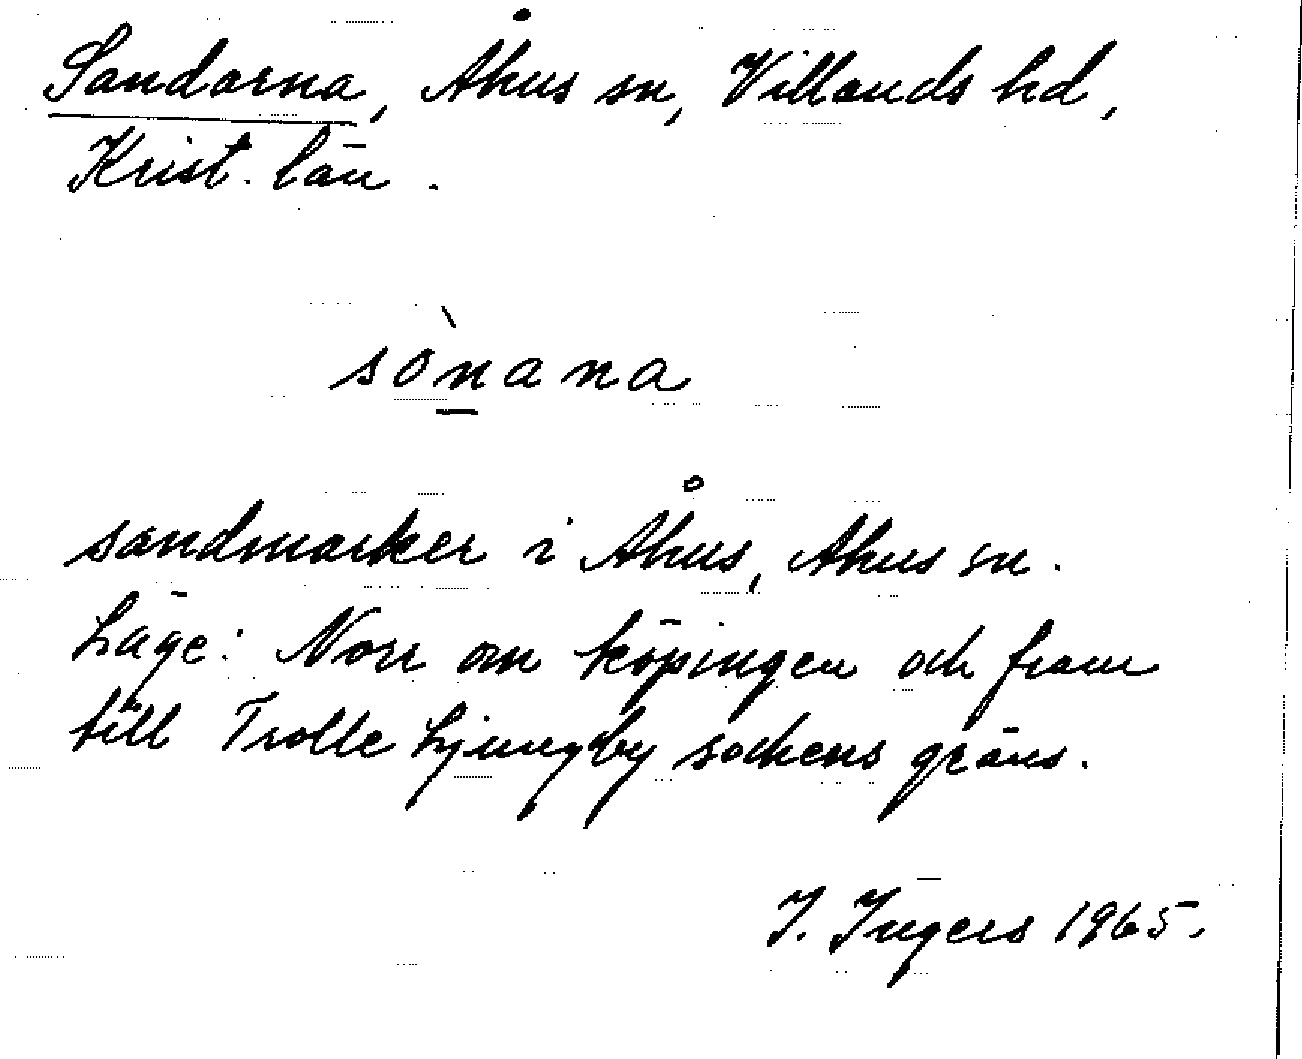 Sandarna, Åhus sn, Villands hd,
Krist. län.
sònana
sandmarker i Åhus, Åhus sn.
Läge: Norr om köpingen och fram
till Trolle Ljungby sockens gräns.
I. Ingers 1965.